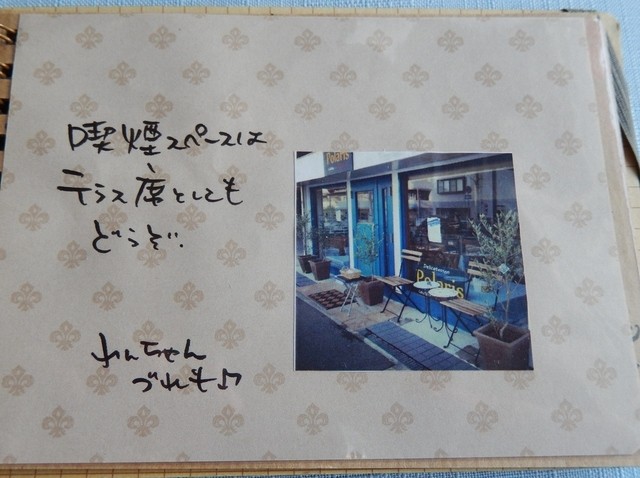 喫煙スペースは
テラス席としても
どうぞ。
わんちゃん
づれも♪
Polaris
Delicatessen
Polaris